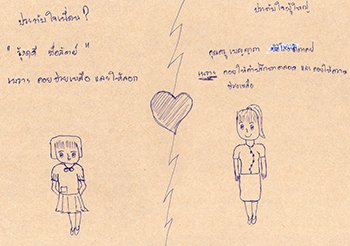 ประทับใจเพื่อน?
" รุ้งฤดี
เพราะ คอยช่วยเหลือ และให้ลอก
ประทับใจผู้ใหญ่
คุณครู เบญญาภา
เพราะ คอยให้คำปรึกษาตลอด และคอยให้ความ
ช่วยเหลือ